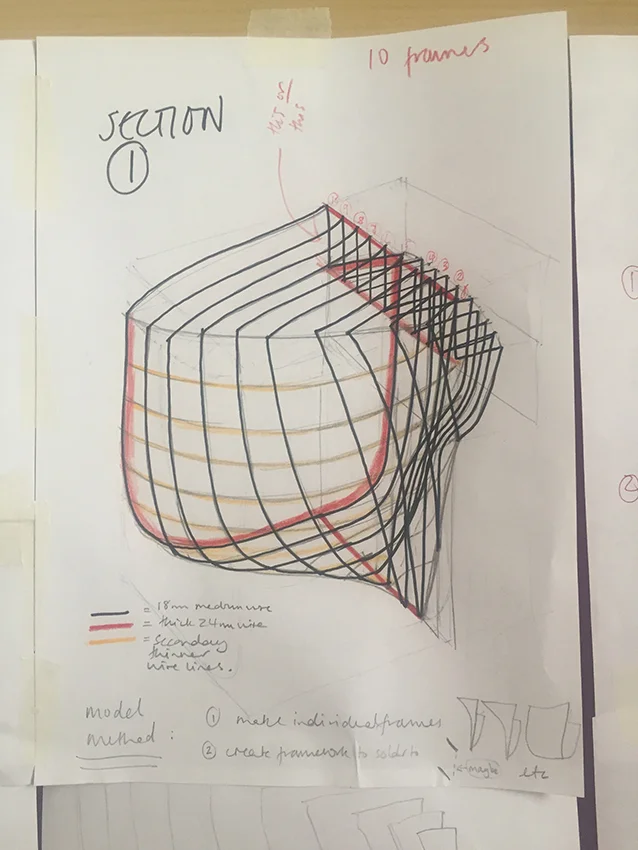 10 frames
SECTION
①
this or/
this
= 18m medium wire
= thick 24m wire
= secondary
thinner
wire lines.
model
method :
① make individual frames
② create framework to solder to
etc
①
②